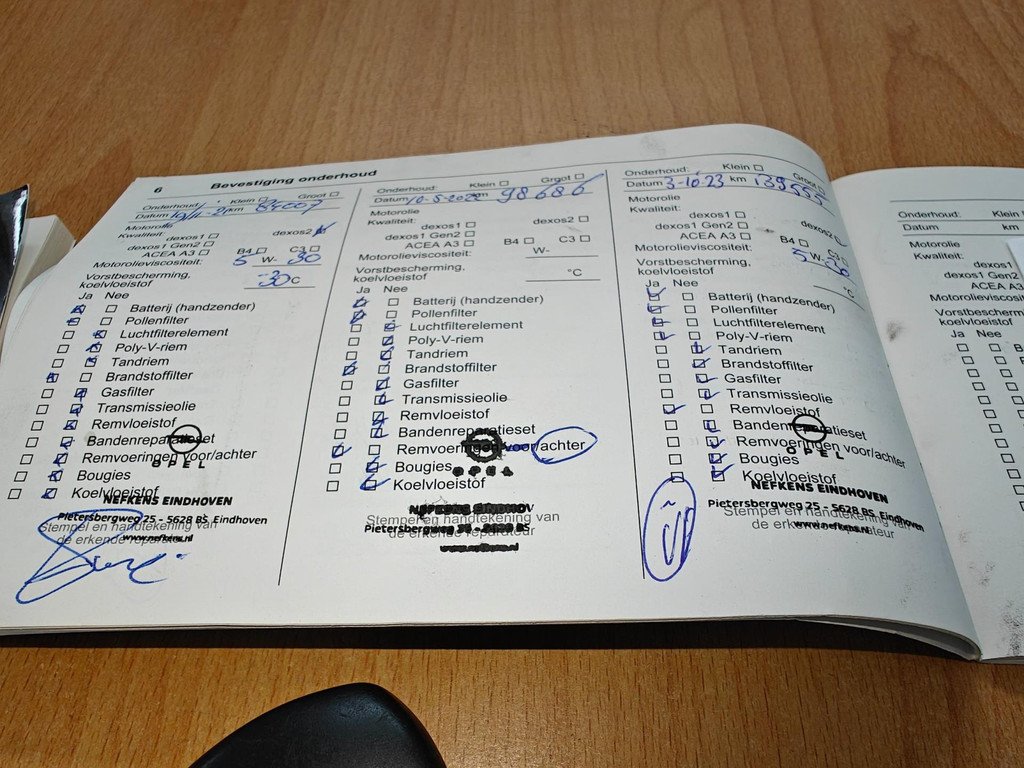 6 Bevestiging onderhoud
Onderhoud: Klein Groot
Datum km 84007
Motorolie
Kwaliteit:
dexos1 dexos2
dexos1 Gen2
ACEA A3 B4 C3
Motorolieviscositeit: 5 W- 30
Vorstbescherming,
koelvloeistof -30°C
Ja Nee
Batterij (handzender)
Pollenfilter
Luchtfilterelement
Poly-V-riem
Tandriem
Brandstoffilter
Gasfilter
Transmissieolie
Remvloeistof
Bandenreparatieset
Remvoeringen voor/achter
Bougies
Koelvloeistof
OPEL
NEFKENS EINDHOVEN
Pietersbergweg 25 - 5628 BS Eindhoven
Stempel en handtekening van
de erkende reparateur
www.nefkens.nl
Onderhoud: Klein Groot
Datum 10-5-2022 km 98686
Motorolie
Kwaliteit:
dexos1 dexos2
dexos1 Gen2
ACEA A3 B4 C3
Motorolieviscositeit: W-
Vorstbescherming,
koelvloeistof °C
Ja Nee
Batterij (handzender)
Pollenfilter
Luchtfilterelement
Poly-V-riem
Tandriem
Brandstoffilter
Gasfilter
Transmissieolie
Remvloeistof
Bandenreparatieset
Remvoeringen voor/achter
Bougies
Koelvloeistof
OPEL
NEFKENS EINDHOV
Pietersbergweg 25 - 5628 BS
Stempel en handtekening van
de erkende reparateur
www.nefkens.nl
Onderhoud: Klein Groot
Datum 3-10-23 km 139555
Motorolie
Kwaliteit:
dexos1 dexos2
dexos1 Gen2
ACEA A3 B4 C3
Motorolieviscositeit: 5 W-
Vorstbescherming,
koelvloeistof °C
Ja Nee
Batterij (handzender)
Pollenfilter
Luchtfilterelement
Poly-V-riem
Tandriem
Brandstoffilter
Gasfilter
Transmissieolie
Remvloeistof
Bandenreparatieset
Remvoeringen voor/achter
Bougies
Koelvloeistof
OPEL
NEFKENS EINDHOVEN
Pietersbergweg 25 - 5628 BS Eindhoven
Stempel en handtekening van
de erkende reparateur
www.nefkens.nl
Onderhoud: Klein
Datum km
Motorolie
Kwaliteit:
dexos1
dexos1 Gen2
ACEA A3
Motorolieviscosite
Vorstbescherm
koelvloeistof
Ja Nee
B